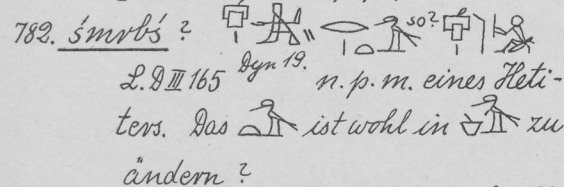 782. śmrbś ? so?
L.D III 165 Dyn 19. n. p. m. eines Heti-
ters. Das ist wohl in zu
ändern ?